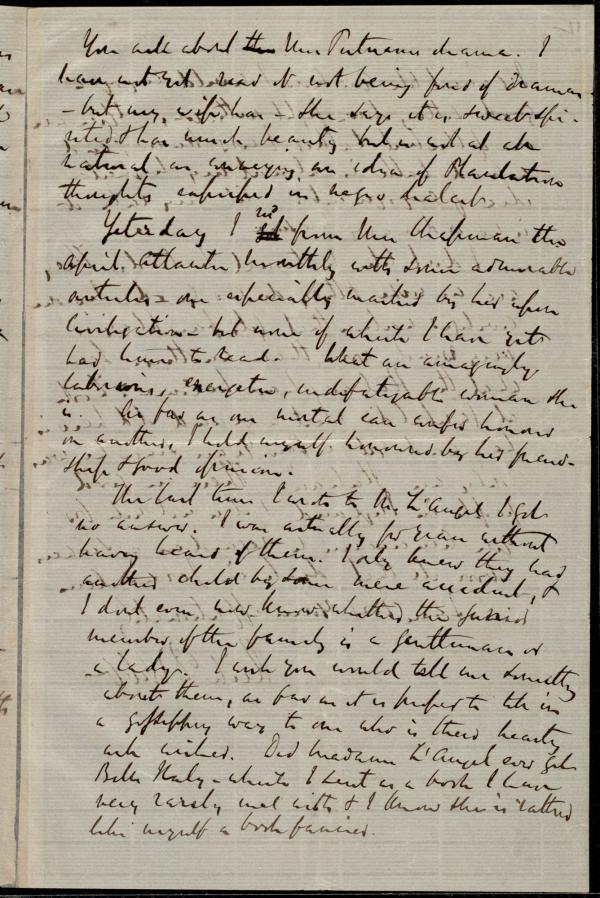 You ask about Mrs Putnams drama. I
have not yet read it not being fond of Dramas
- but my wife has - She says it is sweet spi-
rited & has much beauty but is not at all
natural as conveying an idea of Plantation
thoughts expressed in negro dialect.
Yesterday I recd from Mrs Chapman the
April Atlantic Monthly with some admirable
articles - one especially marked by her upon
Civilization - but none of which I have yet
had time to read. What an amazingly
laborious, energetic, indefatigable woman she
is. As far as one mortal can confer honour
on another, I hold myself honoured by her friend-
ship & good opinion.
The last time I wrote to M. L'Angel I got
no answer. I was actually for years without
having heard of them. I only knew they had
another child by some mere accident, &
I dont even now know whether the junior
member of the family is a gentleman or
a lady. I wish you would tell me something
about them, as far as it is proper to tell in
a gossipping way to one who is their hearty
well wisher. Did Madame L'Angel ever get
Bella Italy - which I sent as a book I have
very rarely met with & I know she is rather
like myself a book fancier.